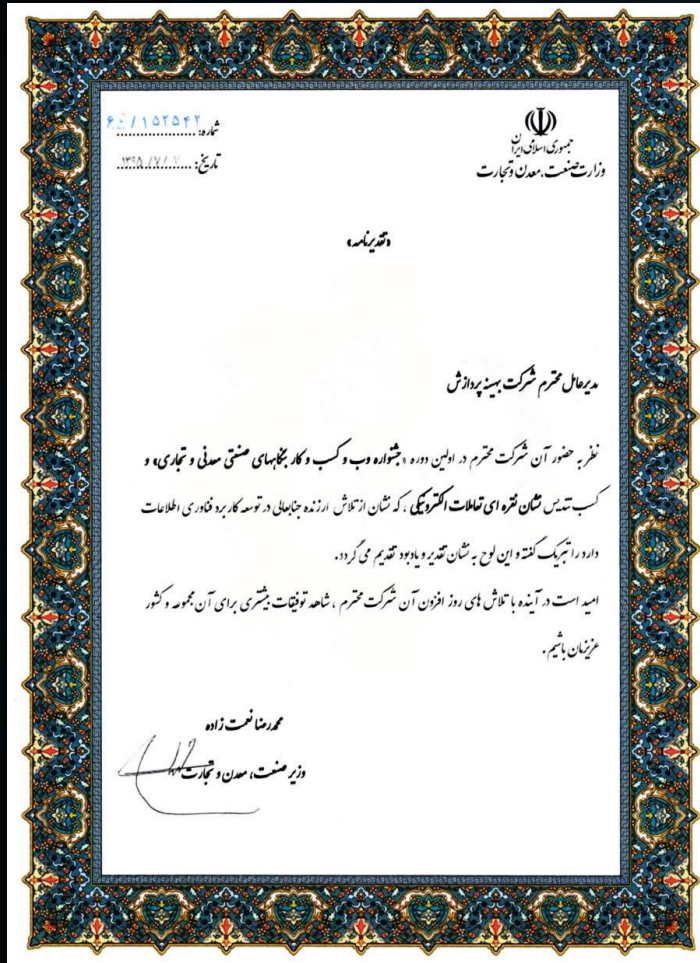 جمهوری اسلامی ایران
وزارت صنعت، معدن و تجارت
شماره: ۶۰/۱۵۲۵۴۲
تاریخ: ۱۳۹۵/۷/۷
«تقدیرنامه»
مدیرعامل محترم شرکت بهینه پردازش
نظر به حضور آن شرکت محترم در اولین دوره «جشنواره وب و کسب و کار بنگاههای صنعتی معدنی و تجاری» و
کسب تندیس نشان نقره ای تعاملات الکترونیکی، که نشان از تلاش ارزنده جنابعالی در توسعه کاربرد فناوری اطلاعات
دارد را تبریک گفته و این لوح به نشان تقدیر و یادبود تقدیم می گردد.
امید است در آینده با تلاش های روز افزون آن شرکت محترم، شاهد توفیقات بیشتری برای آن مجموعه و کشور
عزیزمان باشیم.
محمدرضا نعمت زاده
وزیر صنعت، معدن و تجارت